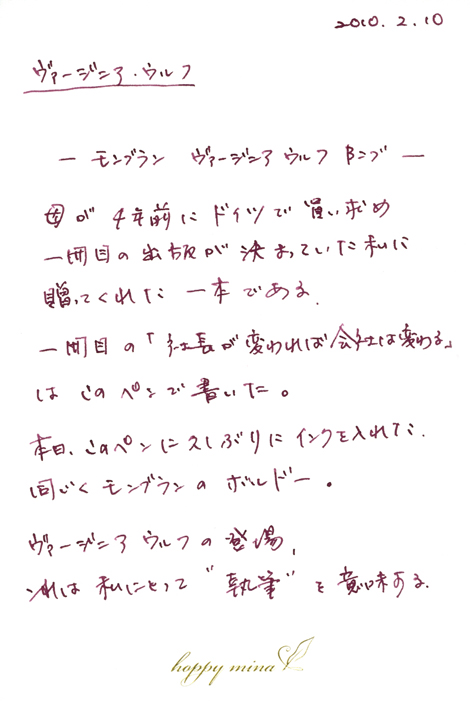 2010.2.10
ヴァージニア・ウルフ
― モンブラン ヴァージニア ウルフ Bニブ ―
母が 4年前に ドイツで 買い求め
一冊目の 出版が 決まっていた 私に
贈ってくれた 一本である.
一冊目の「社長が変われば会社は変わる」
は このペンで 書いた。
本日、このペンに 久しぶりに インクを入れた.
同じく モンブランの ボルドー。
ヴァージニア ウルフの 登場,
それは 私にとって "執筆" を 意味する.
happy mina